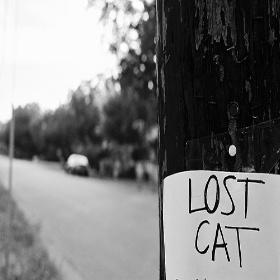 LOST
CAT